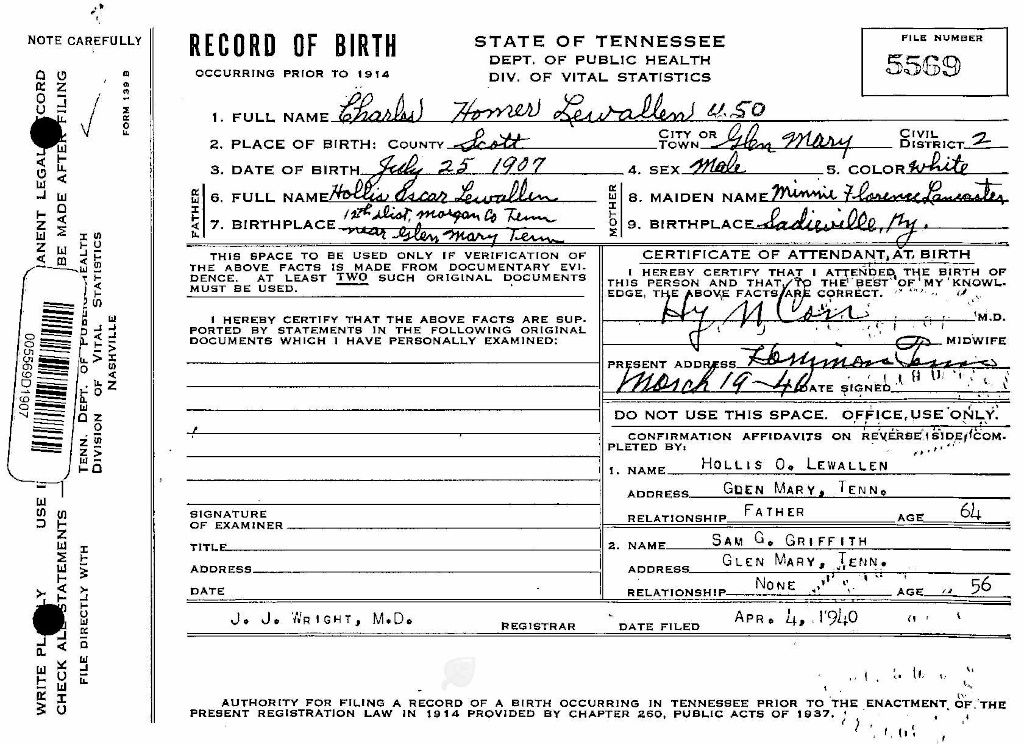 NOTE CAREFULLY
RECORD OF BIRTH
OCCURRING PRIOR TO 1914
STATE OF TENNESSEE
DEPT. OF PUBLIC HEALTH
DIV. OF VITAL STATISTICS
FILE NUMBER
5569
FORM 139 B
1. FULL NAME Charles Homer Lewallen U.50
2. PLACE OF BIRTH: COUNTY Scott CITY OR TOWN Glen Mary CIVIL DISTRICT 2
3. DATE OF BIRTH July 25 1907 4. SEX Male 5. COLOR white
FATHER
6. FULL NAME Hollis Oscar Lewallen
7. BIRTHPLACE 12th dist. Morgan Co Tenn
near Glen Mary Tenn
MOTHER
8. MAIDEN NAME Minnie Florence Lancaster
9. BIRTHPLACE Sadieville, Ky.
THIS SPACE TO BE USED ONLY IF VERIFICATION OF
THE ABOVE FACTS IS MADE FROM DOCUMENTARY EVI-
DENCE. AT LEAST TWO SUCH ORIGINAL DOCUMENTS
MUST BE USED.
I HEREBY CERTIFY THAT THE ABOVE FACTS ARE SUP-
PORTED BY STATEMENTS IN THE FOLLOWING ORIGINAL
DOCUMENTS WHICH I HAVE PERSONALLY EXAMINED:
SIGNATURE
OF EXAMINER
TITLE
ADDRESS
DATE
CERTIFICATE OF ATTENDANT AT BIRTH
I HEREBY CERTIFY THAT I ATTENDED THE BIRTH OF
THIS PERSON AND THAT, TO THE BEST OF MY KNOWL-
EDGE, THE ABOVE FACTS ARE CORRECT.
M.D.
MIDWIFE
PRESENT ADDRESS
March 19-40 DATE SIGNED
DO NOT USE THIS SPACE. OFFICE USE ONLY.
CONFIRMATION AFFIDAVITS ON REVERSE SIDE COM-
PLETED BY:
1. NAME HOLLIS O. LEWALLEN
ADDRESS GLEN MARY, TENN.
RELATIONSHIP FATHER AGE 64
2. NAME SAM G. GRIFFITH
ADDRESS GLEN MARY, TENN.
RELATIONSHIP NONE AGE 56
J. J. WRIGHT, M.D. REGISTRAR DATE FILED APR. 4, 1940
AUTHORITY FOR FILING A RECORD OF A BIRTH OCCURRING IN TENNESSEE PRIOR TO THE ENACTMENT OF THE
PRESENT REGISTRATION LAW IN 1914 PROVIDED BY CHAPTER 260, PUBLIC ACTS OF 1937.
WRITE USE
CHECK STATEMENTS BE MADE AFTER FILING
FILE DIRECTLY WITH
TENN. DEPT. OF HEALTH
DIVISION OF VITAL STATISTICS
NASHVILLE
005569D1907